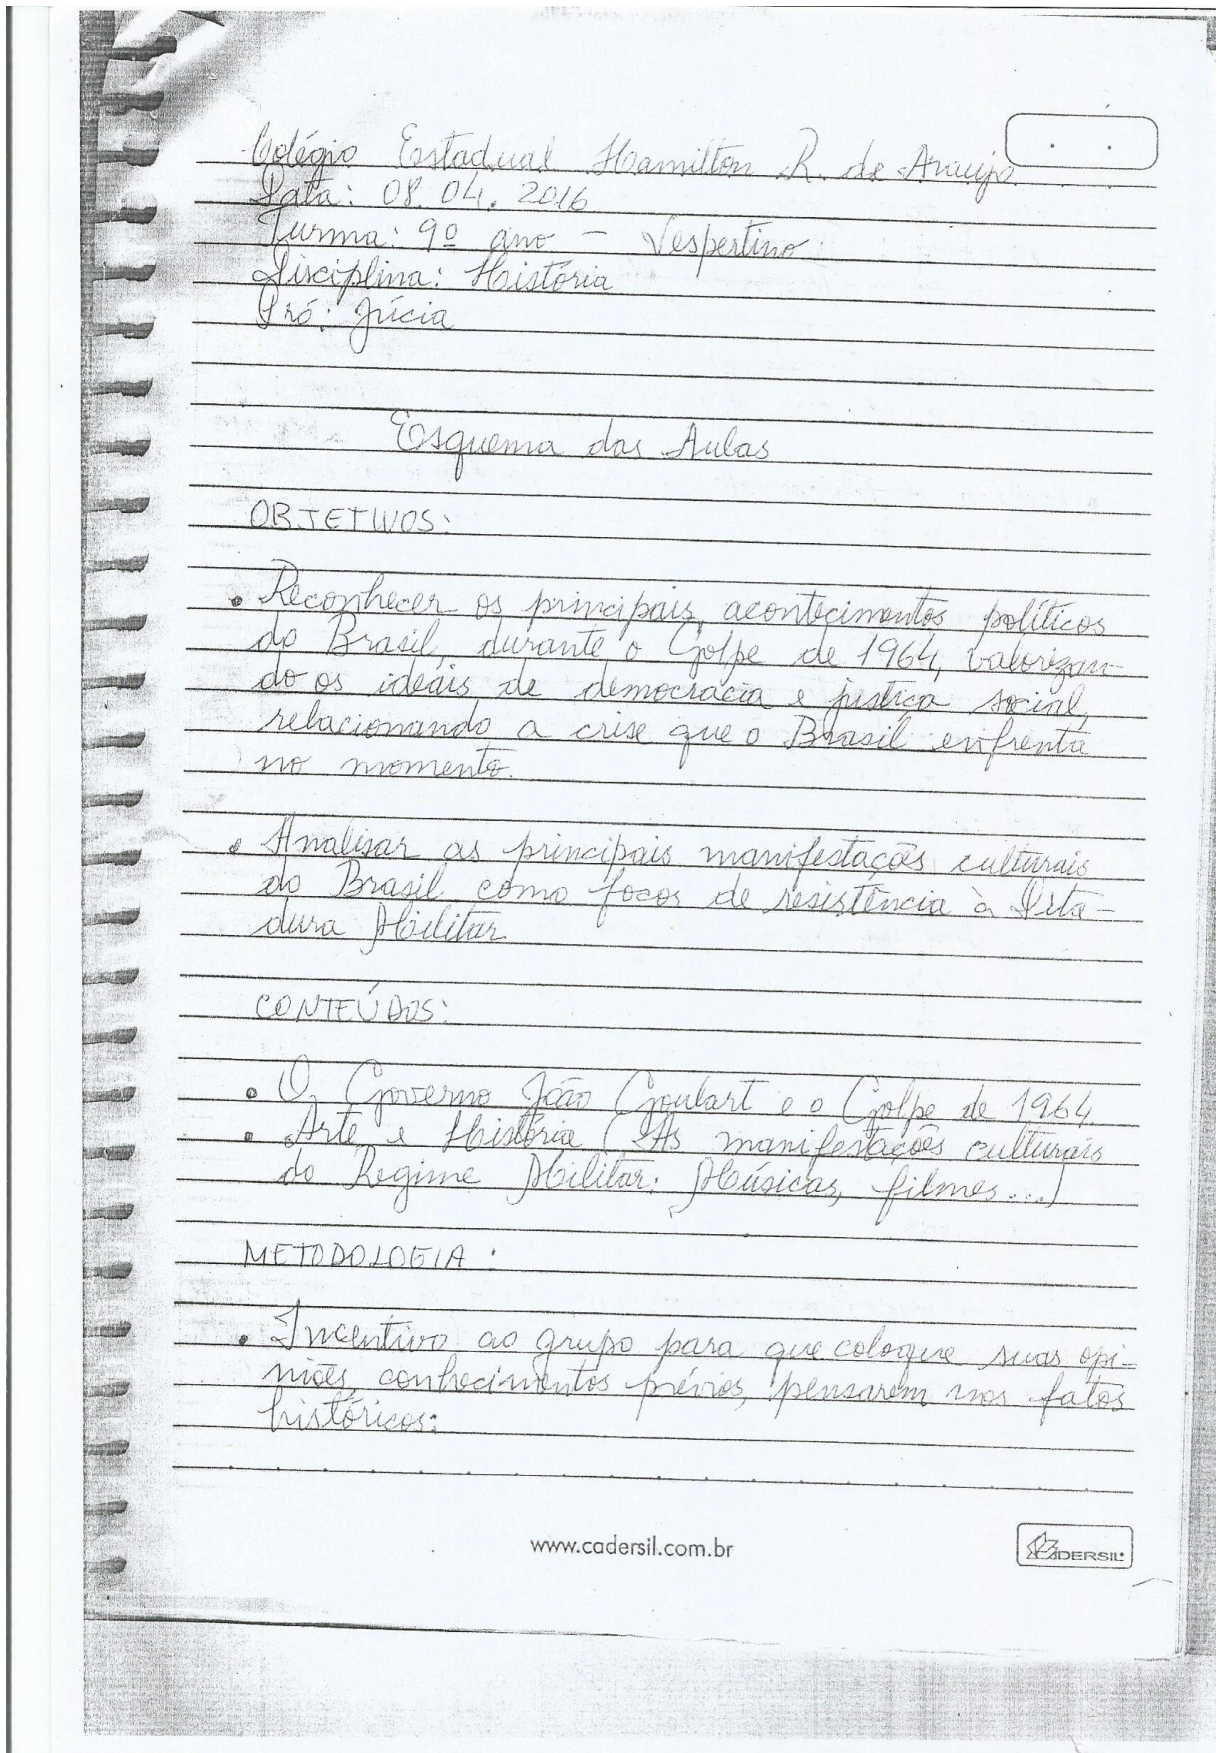 Colégio Estadual Hamilton R. de Araujo
Data: 08.04.2016
Turma: 9º ano - Vespertino
Disciplina: História
Pró: Júcia
Esquema das Aulas
OBJETIVOS:
• Reconhecer os principais acontecimentos políticos
do Brasil, durante o Golpe de 1964, valorizan-
do os ideais de democracia e justiça social,
relacionando a crise que o Brasil enfrenta
no momento.
• Analisar as principais manifestações culturais
do Brasil como focos de resistência à Dita-
dura Militar.
CONTEÚDOS:
• O Governo João Goulart e o Golpe de 1964.
• Arte e História (As manifestações culturais
do Regime Militar: Músicas, filmes...)
METODOLOGIA:
• Incentivo ao grupo para que coloque suas opi-
niões, conhecimentos prévios, pensarem nos fatos
históricos:
www.cadersil.com.br
CADERSIL